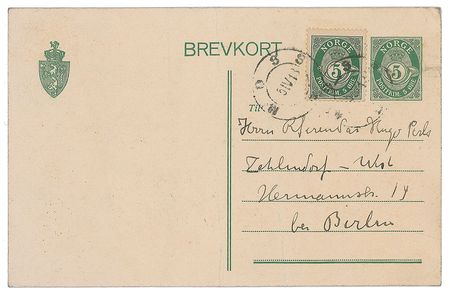 BREVKORT
NORGE
5
POSTFRIM. 5 ØRE
NORGE
5
POSTFRIM. 5 ØRE
MOSS
Til
Herrn Referendar Hugo Perls
Zehlendorf – West
Hermannstr. 14
bei Berlin